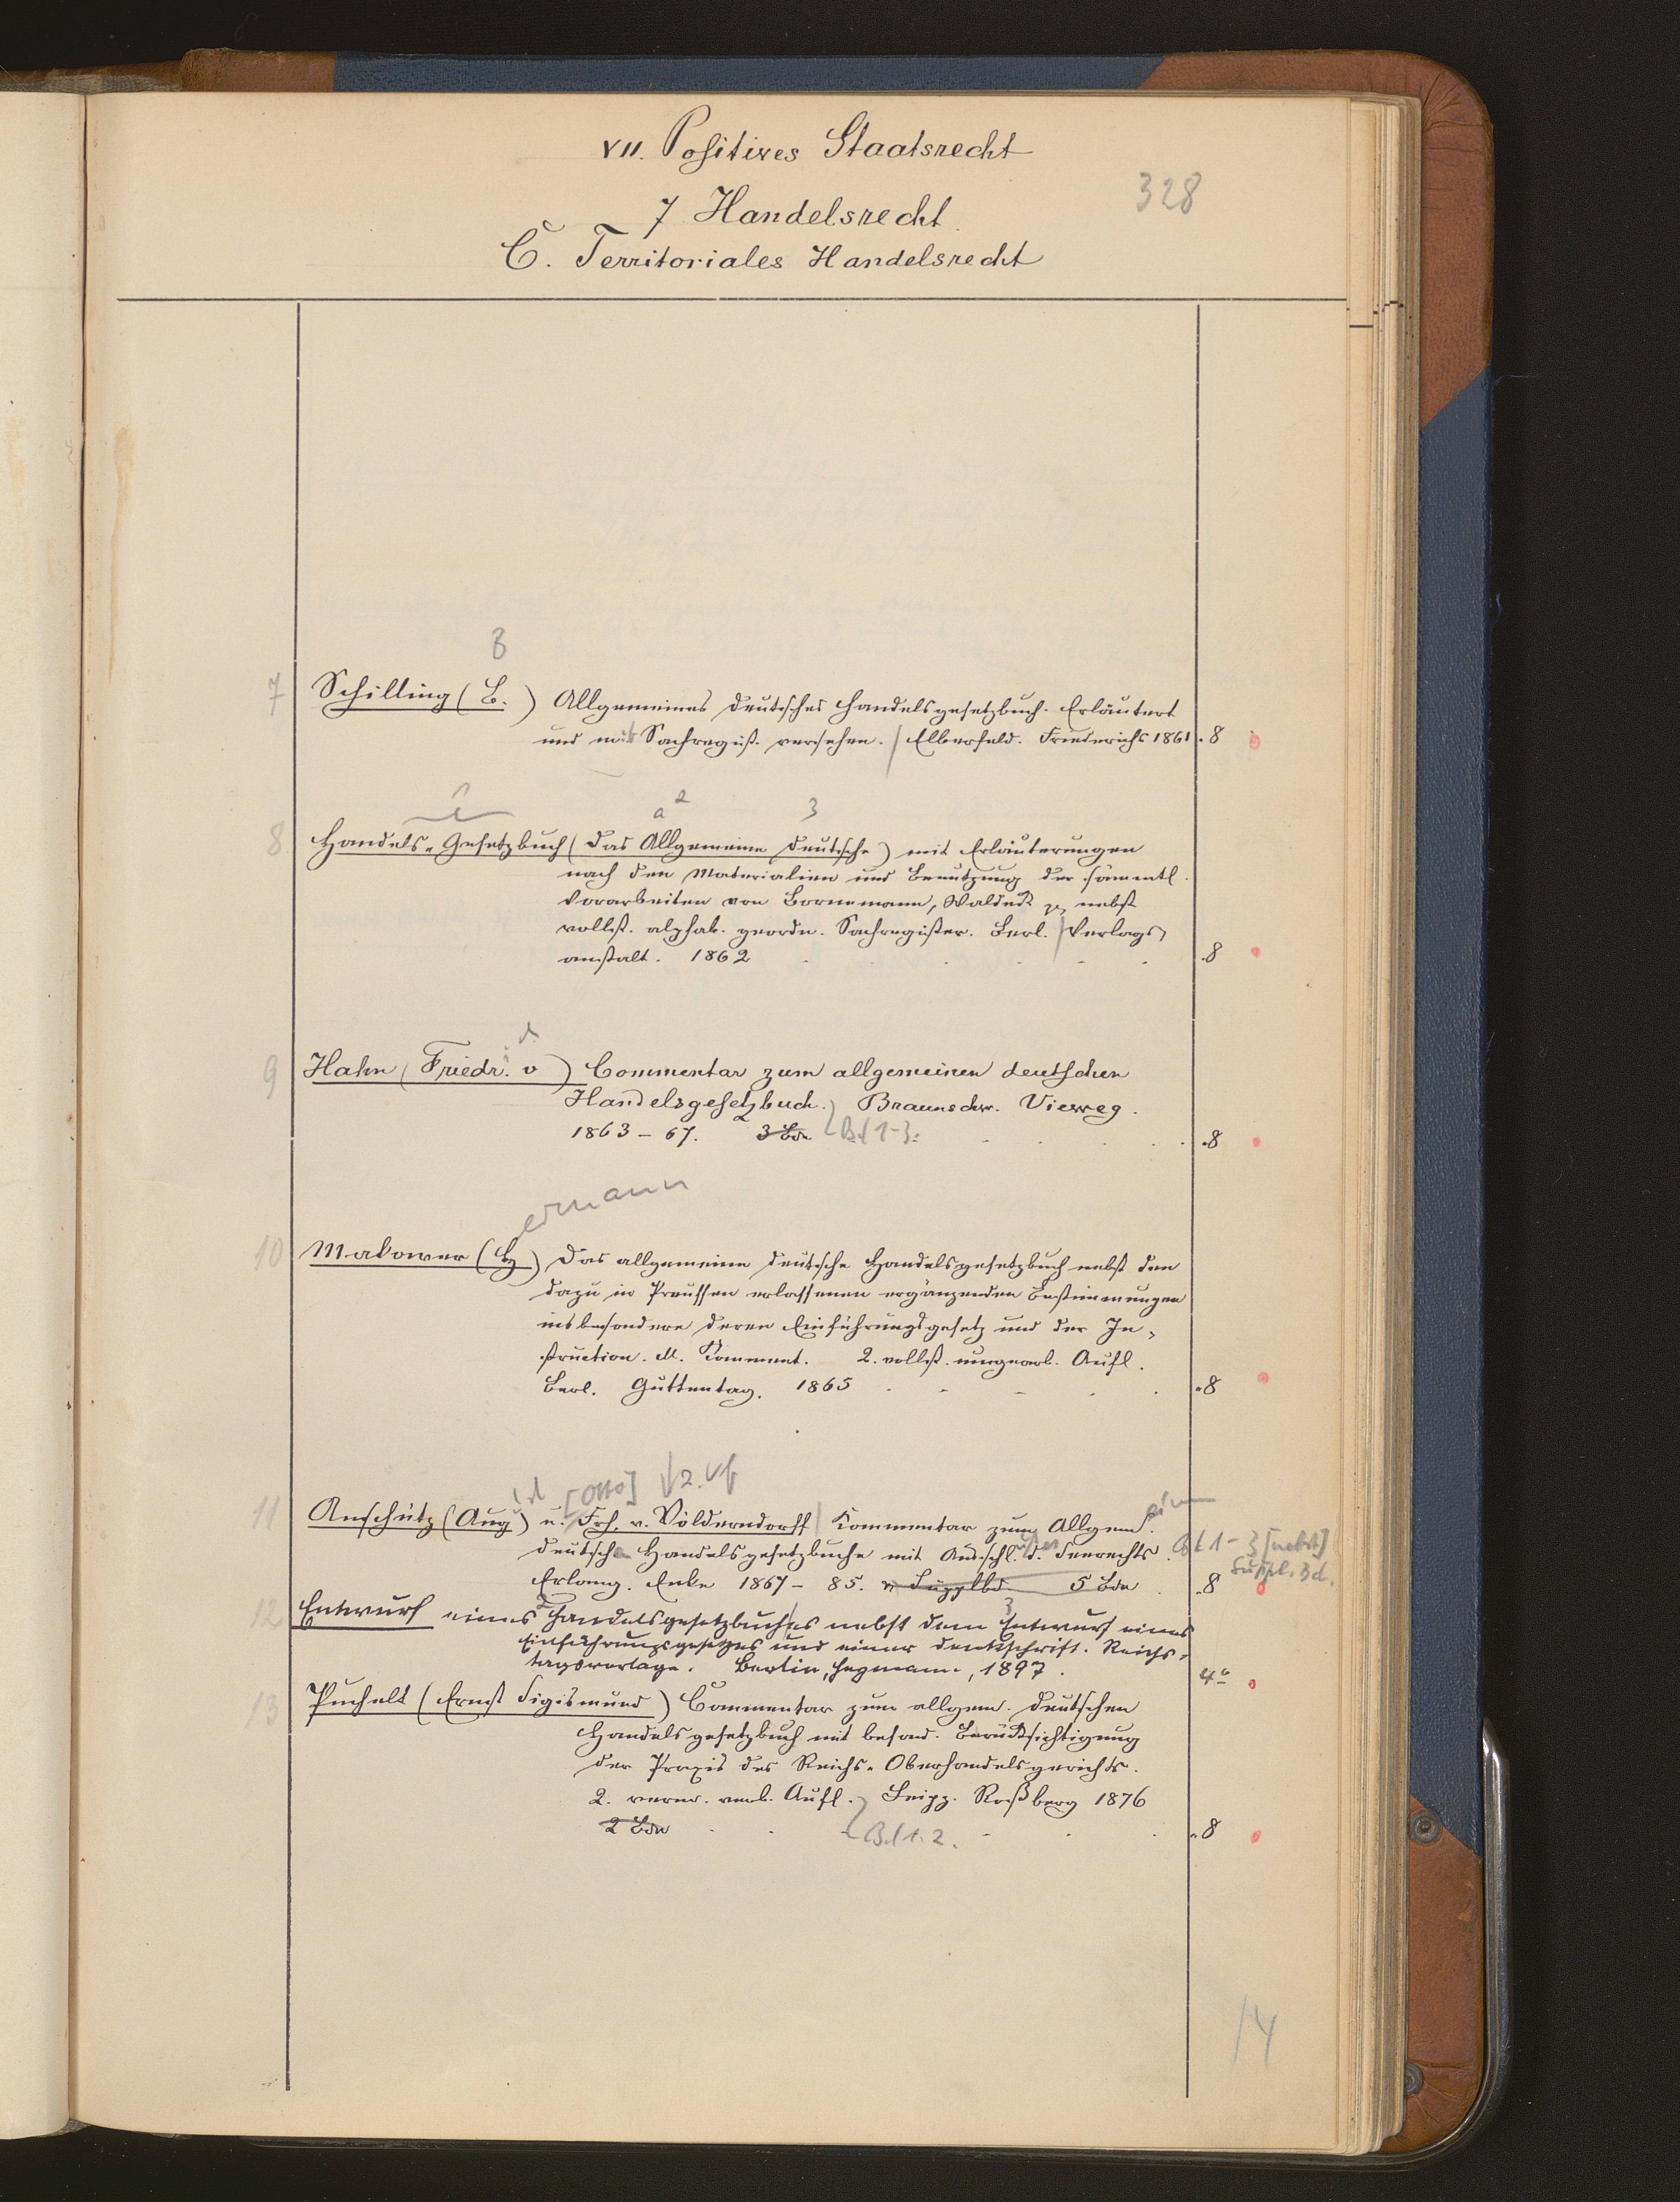 VII. Positives Staatsrecht
328
7 Handelsrecht
C. Territoriales Handelsrecht
B
7 Schilling (B.) Allgemeines deutsches Handelsgesetzbuch. Erläutert
und mit Sachregist. versehen. / Elberfeld. Friederichs 1861 . 8
1 a 2 3
8 Handels-Gesetzbuch (das Allgemeine deutsche) mit Erläuterungen
nach den Materialien und Benutzung der sämmtl.
Vorarbeiten von Bornemann, Waldeck nebst
vollst. alphab. geordn. Sachregister. Berl. / Verlags-
anstalt. 1862 . 8
9 Hahn (Friedr. v) Commentar zum allgemeinen deutschen
Handelsgesetzbuch. Braunschw. Vieweg.
1863 – 67. 3 Bde Bd 1-3. . 8
ermann
10 Makower (H) Das allgemeine deutsche Handelsgesetzbuch nebst den
dazu in Preussen erlassenen ergänzenden Bestimmungen
insbesondere deren Einführungsgesetz und der In-
struction. M. Komment. 2. vollst. umgearb. Aufl.
Berl. Guttentag. 1865 . 8
[Otto] 2. Vf
11 Anschütz (Aug) u. Frh. v. Völderndorff / Kommentar zum Allgem.
deutschen Handelsgesetzbuche mit Ausschl. d. Seerechts. Bd 1-3 [nebst]
Suppl. Bd.
Erlang. Enke 1867 – 85. u Supplbd. 5 Bde . 8
12 Entwurf eines Handelsgesetzbuches nebst dem Entwurf eines
Einführungsgesetzes und einer Denkschrift. Reichs-
tagsvorlage. Berlin, Heymann, 1897. 4°
13 Puchelt (Ernst Sigismund) Commentar zum allgem. deutschen
Handelsgesetzbuch mit besond. Berücksichtigung
der Praxis des Reichs-Oberhandelsgerichts.
2. verm. verb. Aufl. Leipz. Roßberg 1876
2 Bde Bd 1. 2. . 8
14